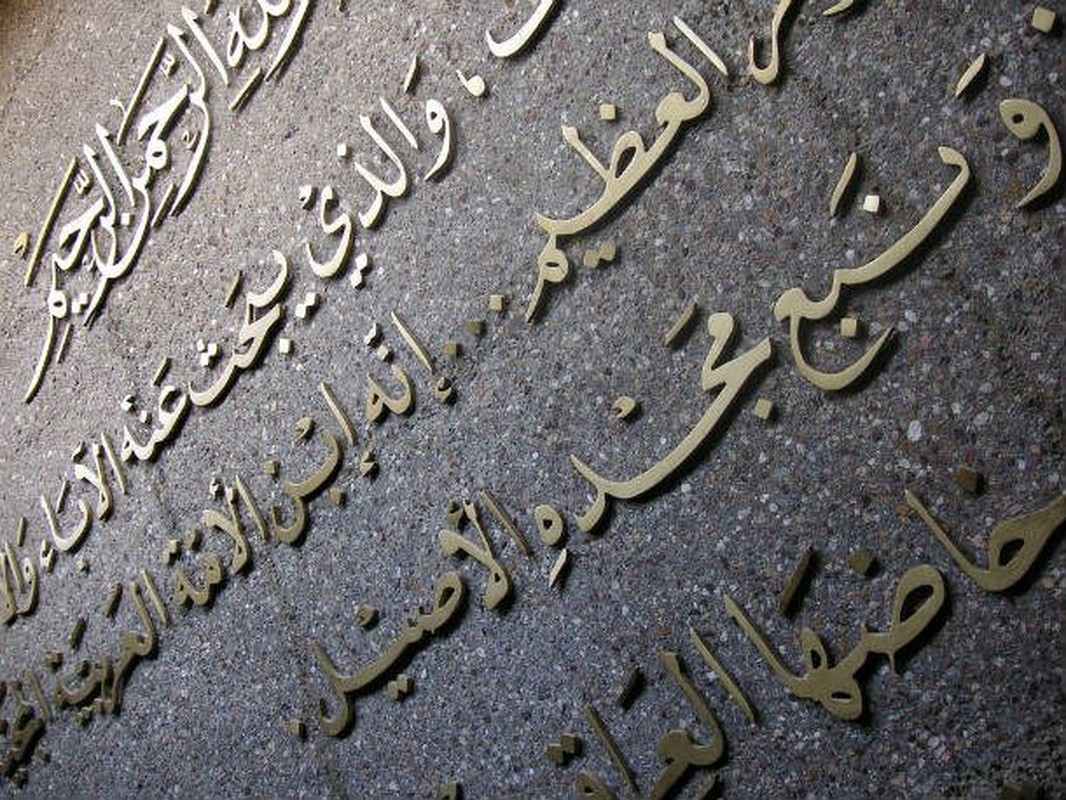 الرَّحْمنِ الرَّحِيْم
وَالذيْ يَبحَثْ عَنْه الآبَاء
العظيم .. إنَّه ابْن الأمَّة العَربيَّة
وَنَبع مَجْدهِ الأصيْل.
خاضهَا العرَاق